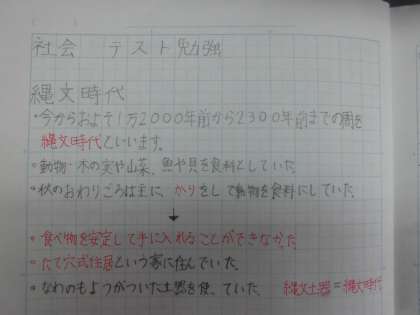 社会 テスト勉強
縄文時代
・今からおよそ1万2000年前から2300年前までの間を
縄文時代といいます。
・動物・木の実や山菜、魚や貝を食料としていた。
・秋のおわりごろは主に、かりをして動物を食料にしていた。
↓
・食べ物を安定して手に入れることができなかった。
・たて穴式住居という家に住んでいた。
・なわのもようがついた土器を使っていた。 縄文土器=縄文時代